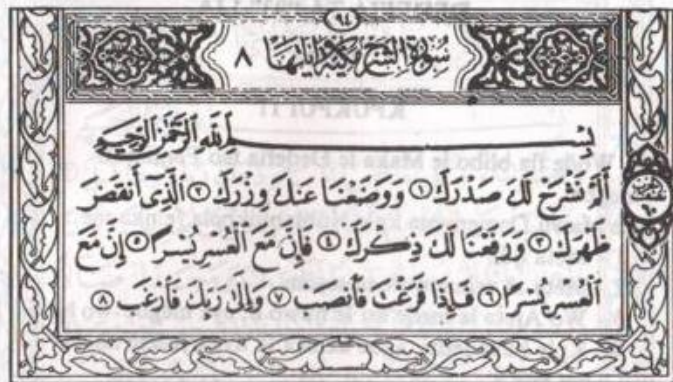 ٩٤
سُورَةُ الشَّرْحِ مَكِّيَّة وَآيَاتُهَا ٨
بِسْمِ اللَّهِ الرَّحْمَٰنِ الرَّحِيمِ
أَلَمْ نَشْرَحْ لَكَ صَدْرَكَ ١ وَوَضَعْنَا عَنكَ وِزْرَكَ ٢ الَّذِي أَنقَضَ
ظَهْرَكَ ٣ وَرَفَعْنَا لَكَ ذِكْرَكَ ٤ فَإِنَّ مَعَ الْعُسْرِ يُسْرًا ٥ إِنَّ مَعَ
الْعُسْرِ يُسْرًا ٦ فَإِذَا فَرَغْتَ فَانصَبْ ٧ وَإِلَىٰ رَبِّكَ فَارْغَب ٨